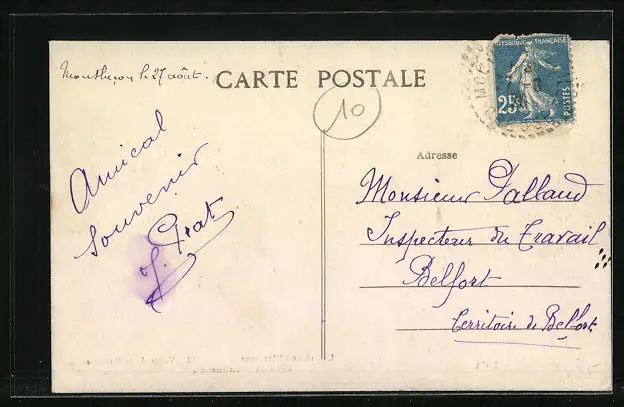 Montluçon le 27 août.
CARTE POSTALE
10
REPUBLIQUE FRANÇAISE
25c
POSTES
Amical
souvenir
J. Prat
Adresse
Monsieur Palland
Inspecteur du Travail
Belfort
Territoire de Belfort